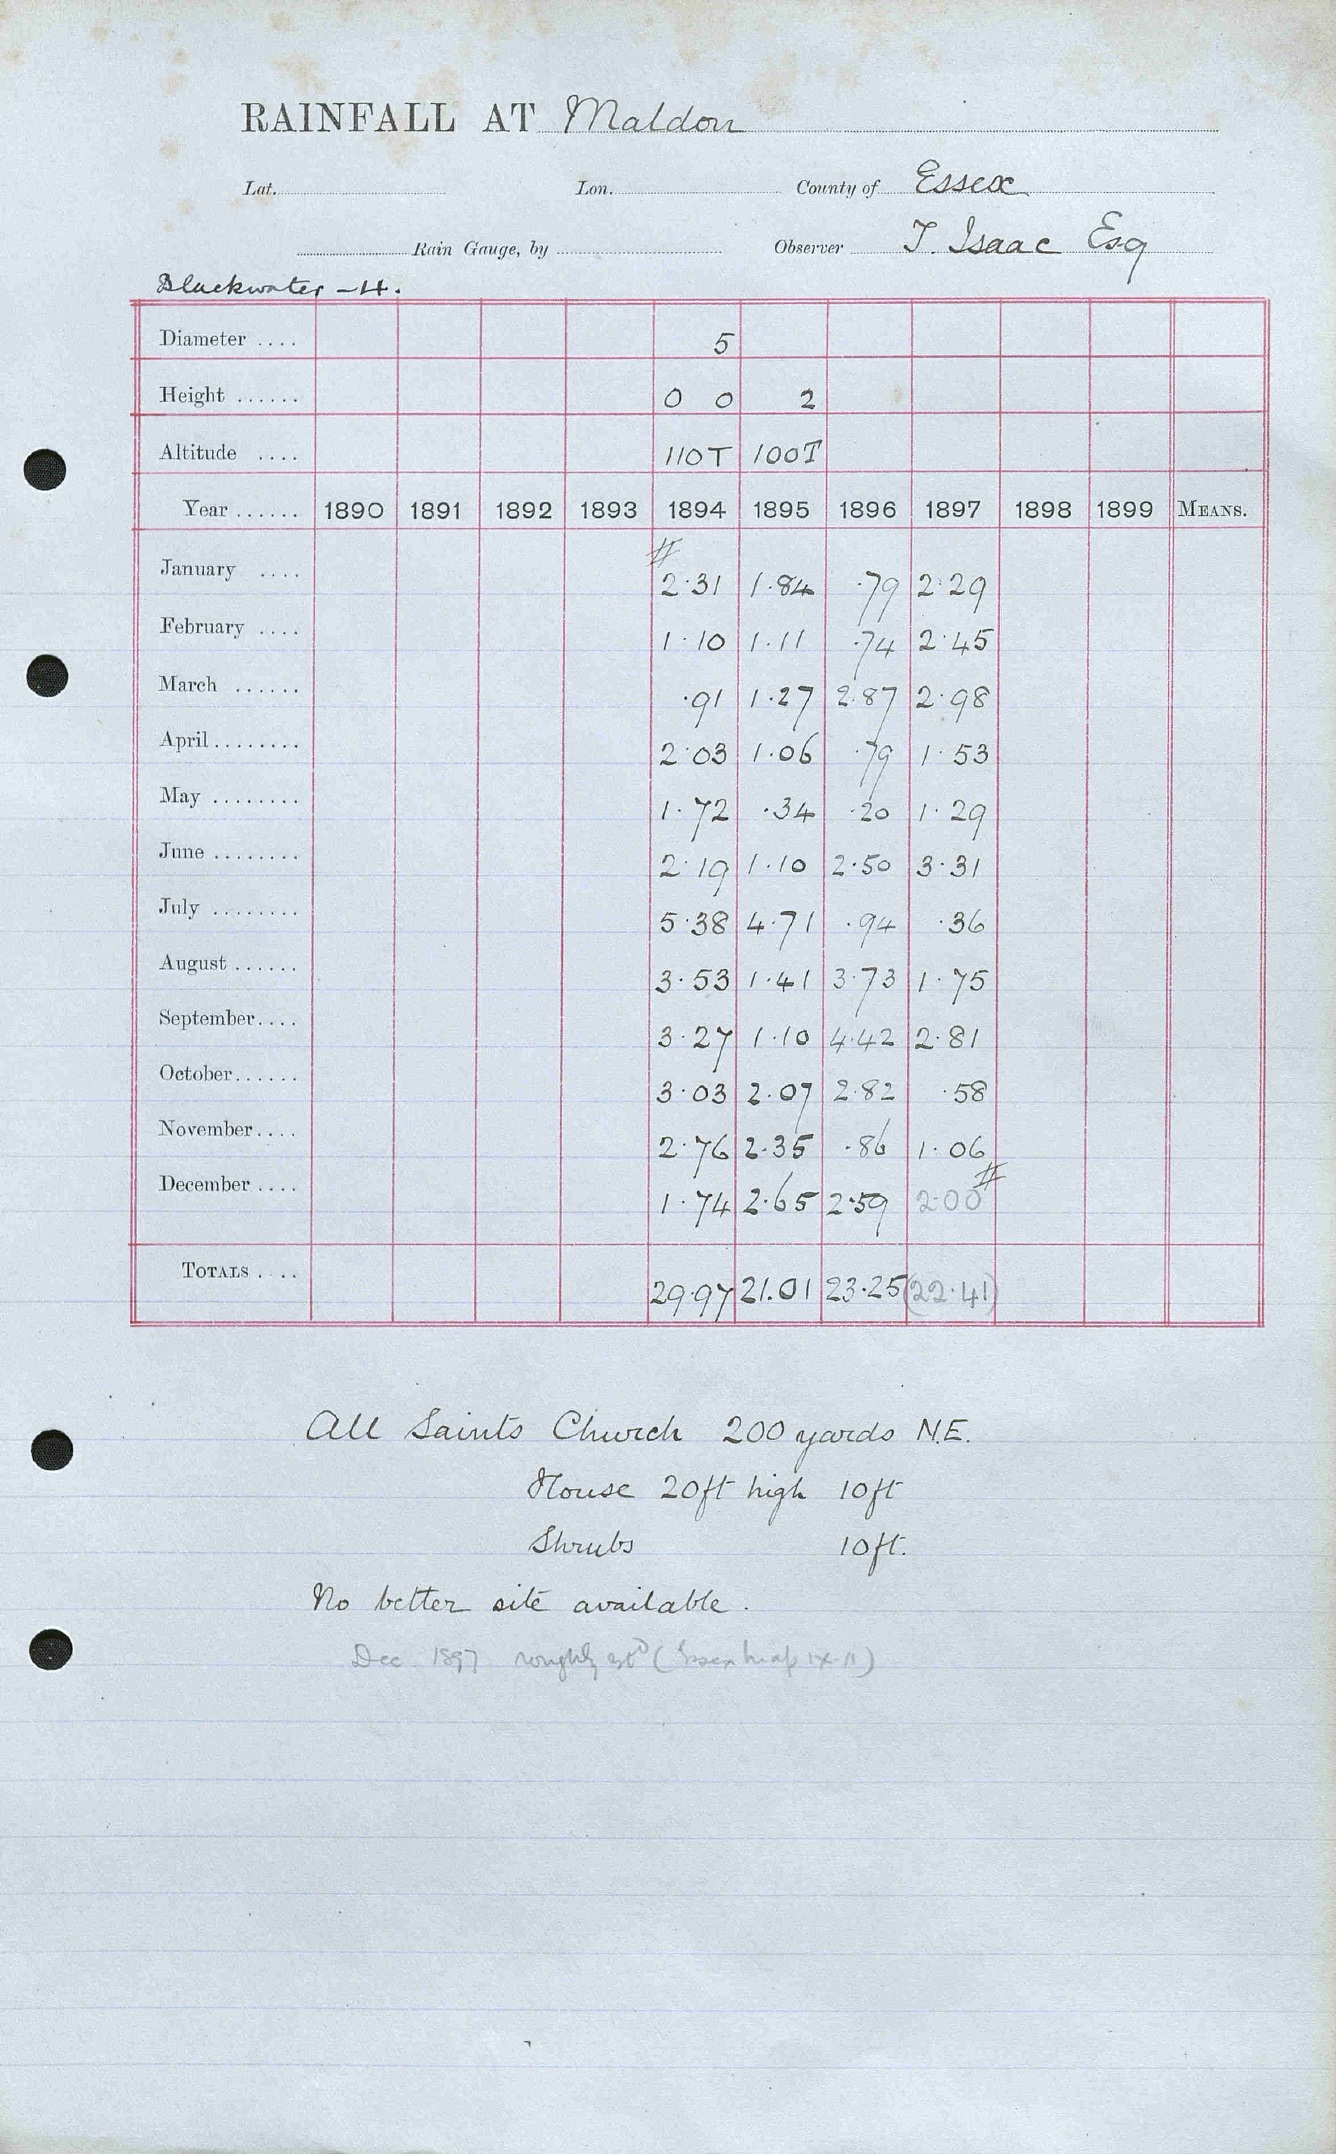 RAINFALL AT Maldon
Lat. Lon. County of Essex
Rain Gauge, by Observer T. Isaac Esq
Blackwater - 4.
Diameter .... 5
Height ...... 0 0 2
Altitude .... 110T 100T
Year ...... 1890 1891 1892 1893 1894 1895 1896 1897 1898 1899 MEANS.
#
January .... 2.31 1.84 .79 2.29
February .... 1.10 1.11 .74 2.45
March ...... .91 1.27 2.87 2.98
April ........ 2.03 1.06 .79 1.53
May ........ 1.72 .34 .20 1.29
June ........ 2.19 1.10 2.50 3.31
July ........ 5.38 4.71 .94 .36
August ...... 3.53 1.41 3.73 1.75
September.... 3.27 1.10 4.42 2.81
October...... 3.03 2.07 2.82 .58
November.... 2.76 2.35 .86 1.06
December .... 1.74 2.65 2.59 2.00 #
TOTALS .... 29.97 21.01 23.25 (22.41)
All Saints Church 200 yards N.E.
House 20ft high 10ft
Shrubs 10ft.
No better site available.
Dec. 1897 roughly (Essex map IX.11)